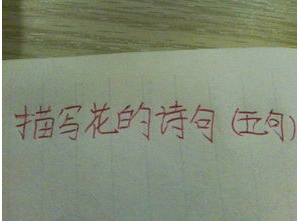 描写花的诗句(五句)